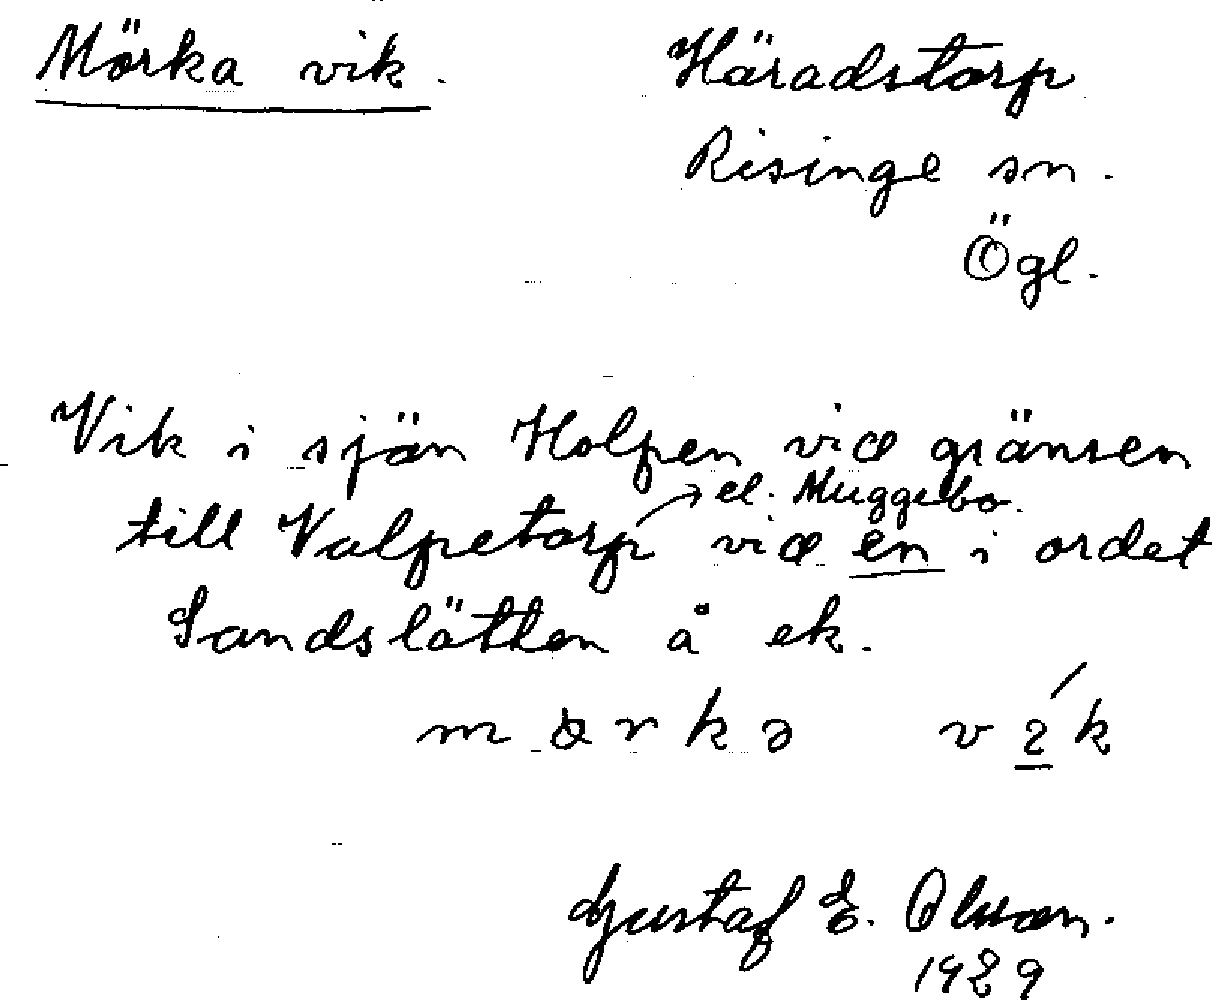 Mörka vik.
Häradstorp
Risinge sn.
Ögl.
Vik i sjön Holpen vid gränsen
el. Muggebo.
till Valpetorp vid en i ordet
Sandslätten å ek.
vík
Gustaf E. Olsson.
1929